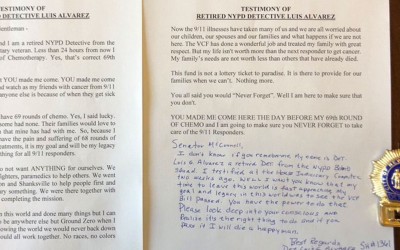 TESTIMONY OF
RETIRED NYPD DETECTIVE LUIS ALVAREZ
Gentleman -
and I am a retired NYPD Detective from the
military veteran. Less than 24 hours from now I
of Chemotherapy. Yes, that's correct 69th
YOU made me come. You made me come
and watch my friends with cancer from 9/11
anyone else is because of when they get sick
have 69 rounds of chemo. Yes, I said lucky.
come and have none. Their families would love to
that mine has had with me. So, because I
have the pain and suffering of 68 rounds of
treatments, it is my goal and will be my legacy
thing for all 9/11 responders.
do not want ANYTHING for ourselves. We
fighters, paramedics to help others. We went
and Shanksville to help people first and
We were there together
with completing the mission.
in this world and done many things but I can
be anywhere else but Ground Zero when I
knowing the world we would never back down
could all work together. No races, no colors
TESTIMONY OF
RETIRED NYPD DETECTIVE LUIS ALVAREZ
Now the 9/11 illnesses have taken many of us and we are all worried about
our children, our spouses and our families and what happens if we are not
here. The VCF has done a wonderful job and treated my family with great
respect. But my life isn't worth more than the next responder to get cancer.
My family's needs are not worth less than others that have already died.
This fund is not a lottery ticket to paradise. It is there to provide for our
families when we can't. Nothing more.
You all said you would "Never Forget". Well I am here to make sure that
you don't.
YOU MADE ME COME HERE THE DAY BEFORE MY 69TH ROUND
OF CHEMO and I am going to make sure you NEVER FORGET to take
care of the 9/11 Responders.
Senator McConnell,
I don't know if you remember my name is Det.
Luis G. Alvarez a retired Det from the NYPD Bomb
Squad. I testified at the House Judiciary Committee
two weeks ago. Now I want you to know that my
time to leave this world is fast approaching my
goal and legacy in this world is to see the VCF
Bill passed. You have the power to do that.
Please look deep into your conscience and
Realize its the right thing to do and if you
Pass it I will die a happy man.
Best Regards